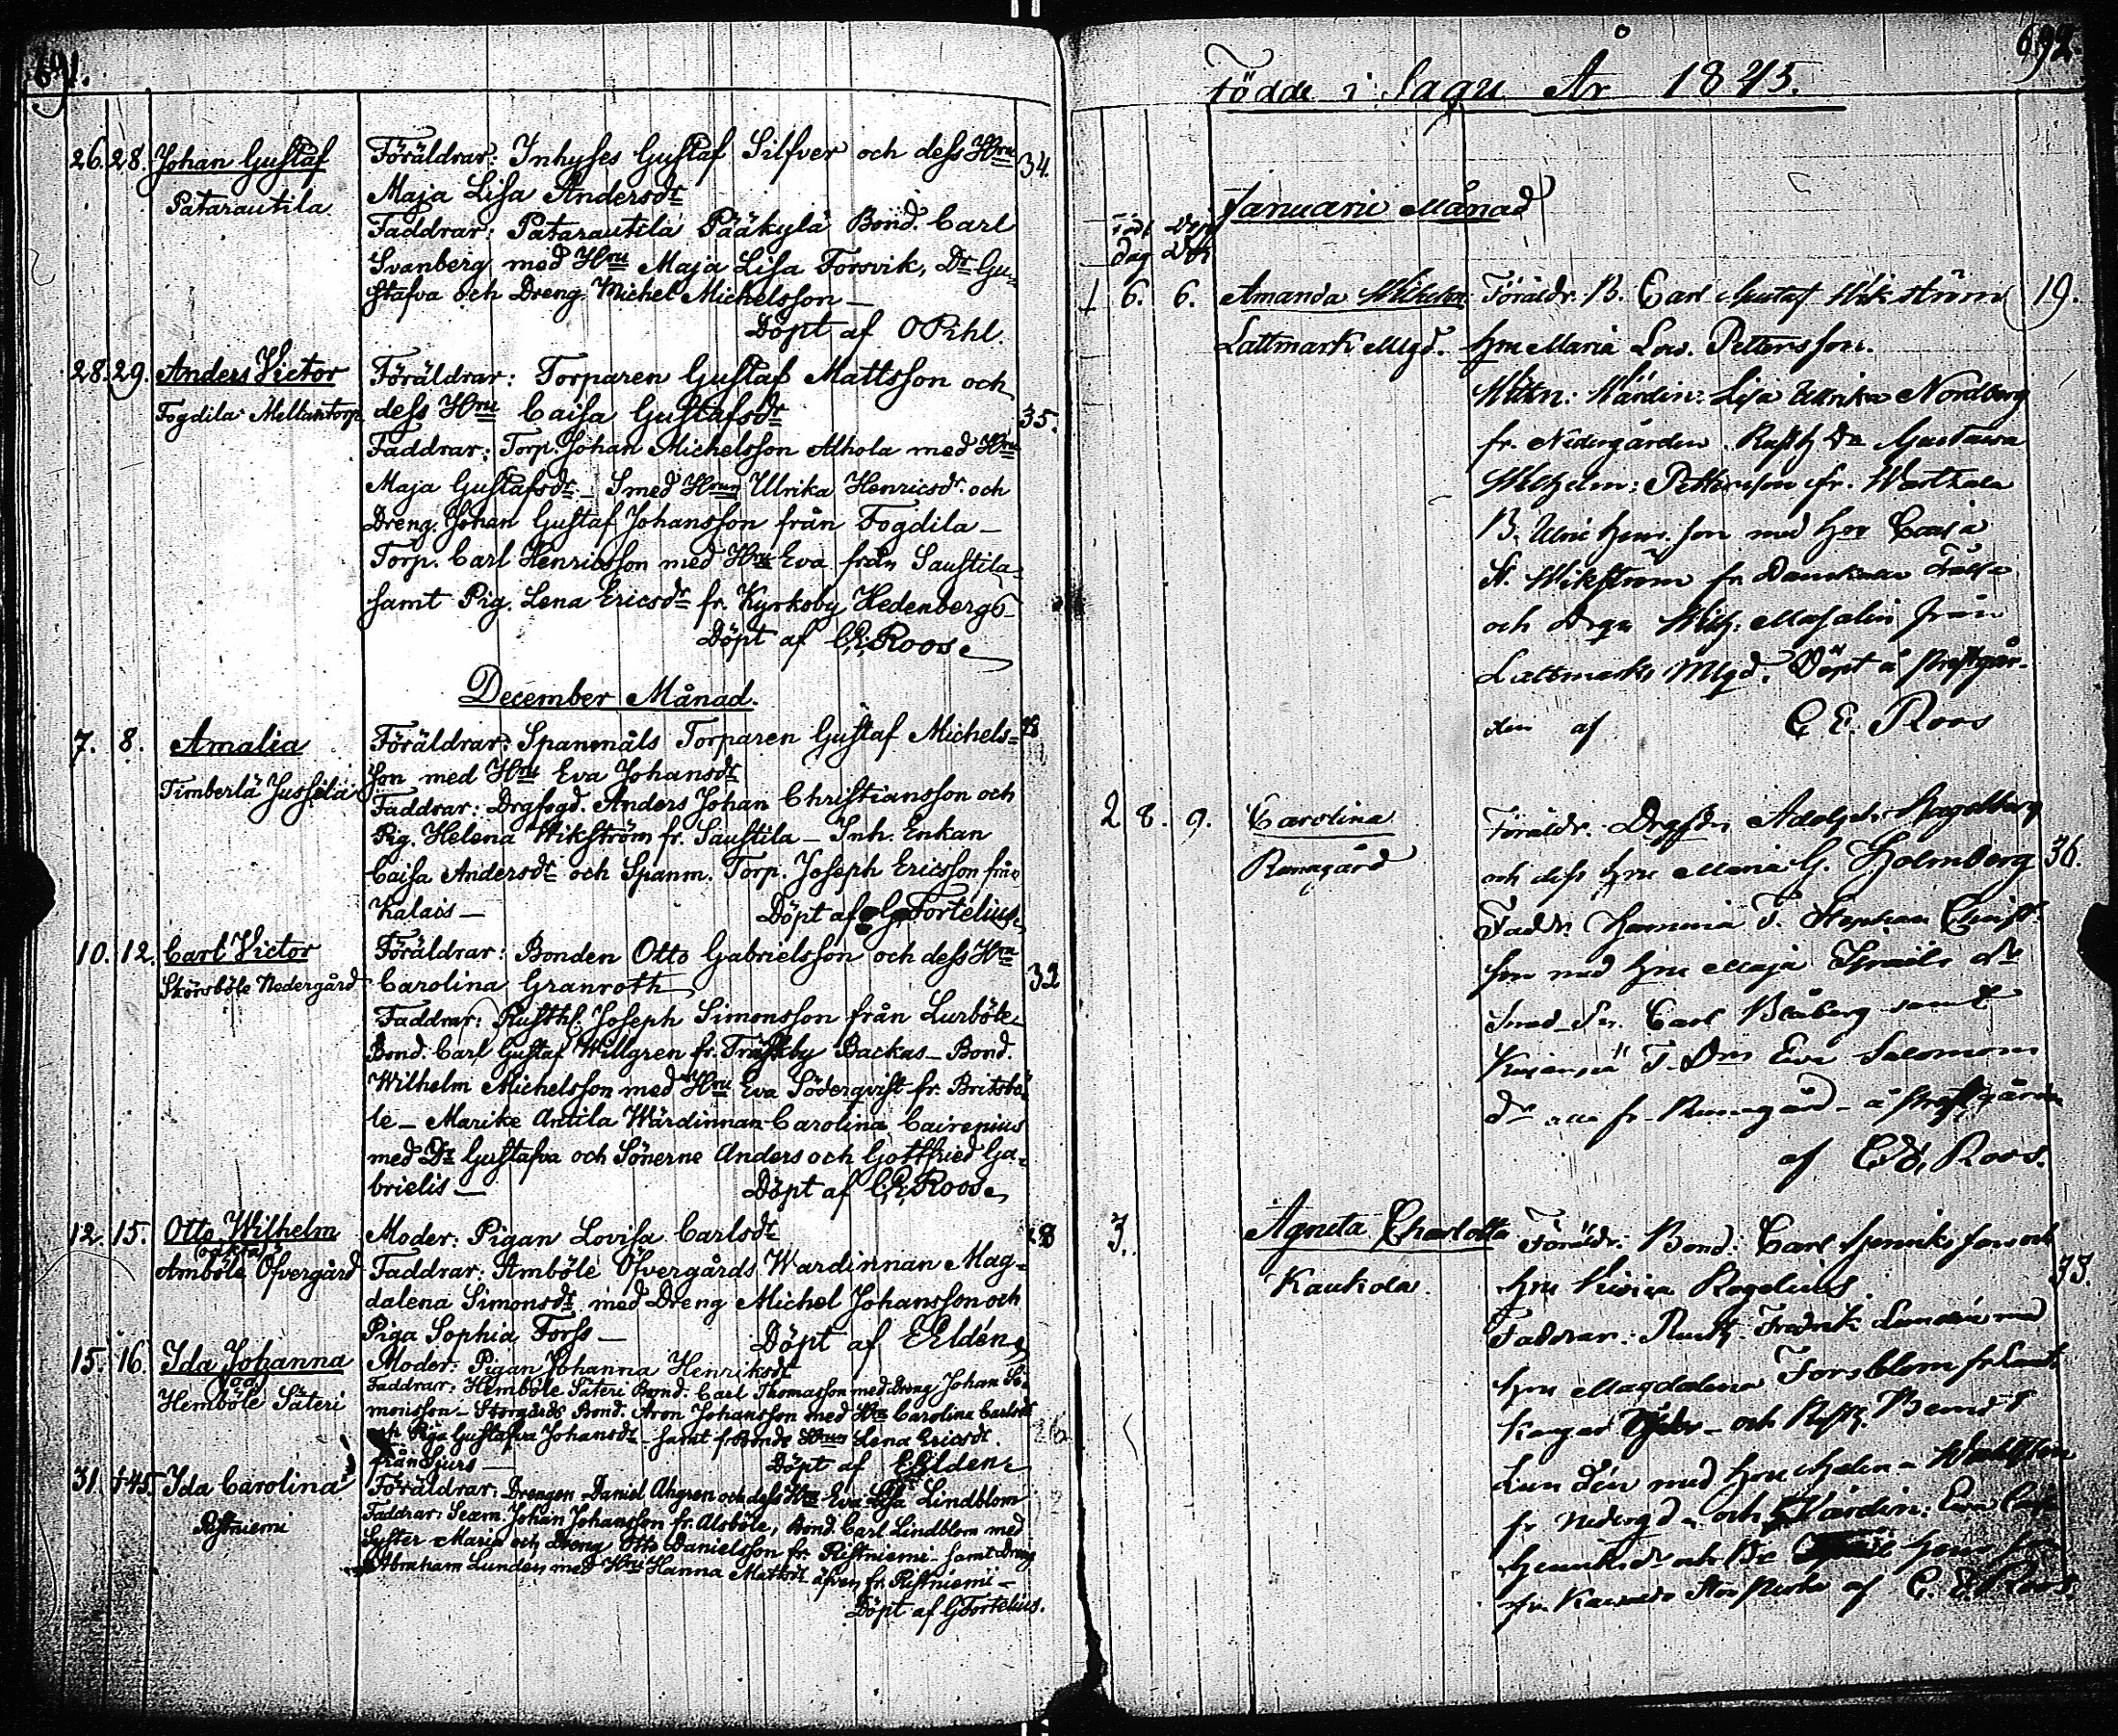 691.
26. 28. Johan Gustaf
Patarautila
Föräldrar: Inhyses Gustaf Silfver och dess Hru 34.
Maja Lisa Andersdr
Faddrar: Patarautila Pääkylä Bond. Carl
Svanberg med Hru Maja Lisa Forsvik, Dr Gu-
stafva och Dreng Michel Michelsson —
Döpt af O Pihl.
28. 29. Anders Victor
Fogdila Mellantorp
Föräldrar: Torparen Gustaf Mattsson och
dess Hru Caisa Gustafsdr 35.
Faddrar: Torp. Johan Michelsson Alhola med Hru
Maja Gustafsdr – Smed Hrun Ulrika Henricsdr och
Dreng. Johan Gustaf Johansson från Fogdila —
Torp. Carl Henricsson med Hru Eva från Saustila
samt Pig. Lena Ericsdr fr. Kyrksby Hedenbergs
Döpt af C.E. Roos
December Månad.
7. 8. Amalia
Timberlä Jussila
Föräldrar: Spanmåls Torparen Gustaf Michels-
son med Hru Eva Johansdr
Faddrar: Drgfogd. Anders Johan Christiansson och
Pig. Helena Wikström fr. Saustila — Inh. Enkan
Caisa Andersdr och Spanm. Torp. Joseph Ericsson från
Kalais — Döpt af G Fortelius
10. 12. Carl Victor
Skörsböle Nedergård
Föräldrar: Bonden Otto Gabrielsson och dess Hru
Carolina Granroth 32
Faddrar: Rusth. Joseph Simonsson från Lurböle
Bond. Carl Gustaf Willgren fr. Träskby Backas – Bond.
Wilhelm Michelsson med Hru Eva Söderqvist fr. Britsbö-
le – Marike Antila Wärdinnan Carolina Cairenius
med Dr Gustafva och Sönerne Anders och Gottfried Ga-
brielis — Döpt af C.E. Roos
12. 15. Otto Wilhelm
(oäkta)
Amböle Öfvergård
Moder: Pigan Lovisa Carlsdr 28
Faddrar: Amböle Öfvergårds Wärdinnan Mag-
dalena Simonsdr med Dreng Michel Johansson och
Piga Sophia Forss — Döpt af E Eldén
15. 16. Ida Johanna
(oä)
Hemböle Säteri
Moder: Pigan Johanna Henriksdr
Faddrar: Hemböle Säteri Bond. Carl Thomasson med Dreng Johan Si-
monsson – Storgårds Bond. Aron Johansson med Hru Carolina Carlsdr
Piga Gustafva Johansdr – samt Bonde Hrun Lena Ericsdr 26
från Sjurs — Döpt af E Eldén
31. 1/45. Ida Carolina
Ristniemi
Föräldrar: Drengen Daniel Ahgren och dess Hru Eva Lisa Lindblom
Faddrar: Sexm. Johan Johansson fr. Alsböle, Bond. Carl Lindblom med
Syster Maria och Dreng Otto Danielsson fr. Ristniemi – samt Dreng
Abraham Lunden med Hru Hanna Matsdr äfven fr. Ristniemi —
Döpt af G Fortelius.
692.
Födde i Sagu År 1845.
Januarii Månad
Född Döpt
dag
1 6. 6. Amanda
Lattmark Mlgd.
Föräldr. B. Carl Gustaf Wikström 19.
Hru Maria Lov. Pettersson.
Wärdin: Lisa Ulrika Nordberg
fr. Nedergården Rusth Dr Gustava
Wilhelm: Pettersson fr.
B. med Hru Caisa
Wikström fr.
och Drgn från
Lattmarks Mlgd. Döpt å prestgår-
den af C E. Roos
2 8. 9. Carolina
Runagård
Föräldr. Adolph Hagelberg
och dess Hru Maria G. Holmberg 36.
Fadr. Christ
son med Hru Maja dr
Smed Carl Blåberg samt
Eva Salomons
dr fr. Runagård – å prestgården
af C. E. Roos.
3. Agneta Charlotta
Kaukola
Föräldr. Bond: Carl Henrikson och
Hru Rogelius. 33.
Faddrar: Rusth. Fredrik Lundén med
Hru Magdalena Forsblom fr
och Rusth. Bernd
Lundén med Hru Helena
fr Nedergd – och Wärdin: Eva
Henriksdr och
af C. E. Roos